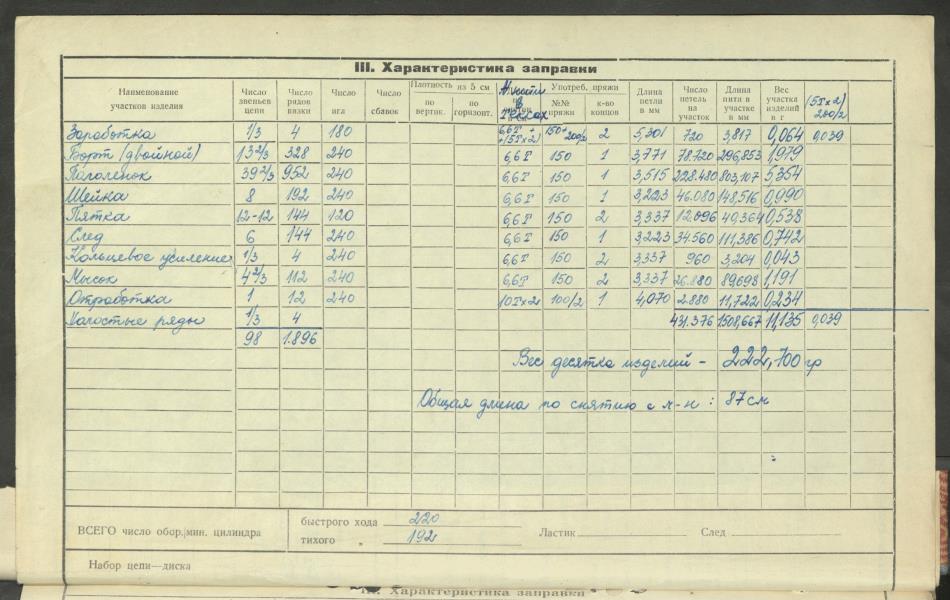 III. Характеристика заправки
Наименование участков изделия | Число звеньев цепи | Число рядов вязки | Число игл | Число сбавок | Плотность из 5 см по вертик. | по горизонт. | Нити в тексах | Употреб. пряжи №№ пряжи | к-во концов | Длина петли в мм | Число петель на участок | Длина нити в участке в мм | Вес участка изделий в г | (5Тх2) 200/2
Заработка 1/3 4 180 6,6Т + +(5Тх2) 150+200/2 2 5,301 720 3,817 0,064 0,039
Борт (двойной) 13 2/3 328 240 6,6Т 150 1 3,771 78.720 296,853 1,979
Паголенок 39 2/3 952 240 6,6Т 150 1 3,515 228.480 803,107 5,354
Шейка 8 192 240 6,6Т 150 1 3,223 46.080 148,516 0,990
Пятка 12-12 144 120 6,6Т 150 2 3,337 12,096 40,364 0,538
След 6 144 240 6,6Т 150 1 3,223 34.560 111,386 0,742
Кольцевое усиление 1/3 4 240 6,6Т 150 2 3,337 960 3,204 0,043
Мысок 4 2/3 112 240 6,6Т 150 2 3,337 26.880 89,698 1,191
Отработка 1 12 240 10Тх2 100/2 1 4,070 2.880 11,722 0,234
Холостые ряды 1/3 4 431.376 1508,667 11,135 0,039
98 1.896
Вес десятка изделий - 222,700 гр
Общая длина по снятию с м-н : 87 см
ВСЕГО число обор./мин. цилиндра
быстрого хода 220
тихого „ 192
Ластик
След
Набор цепи—диска
III. Характеристика заправки